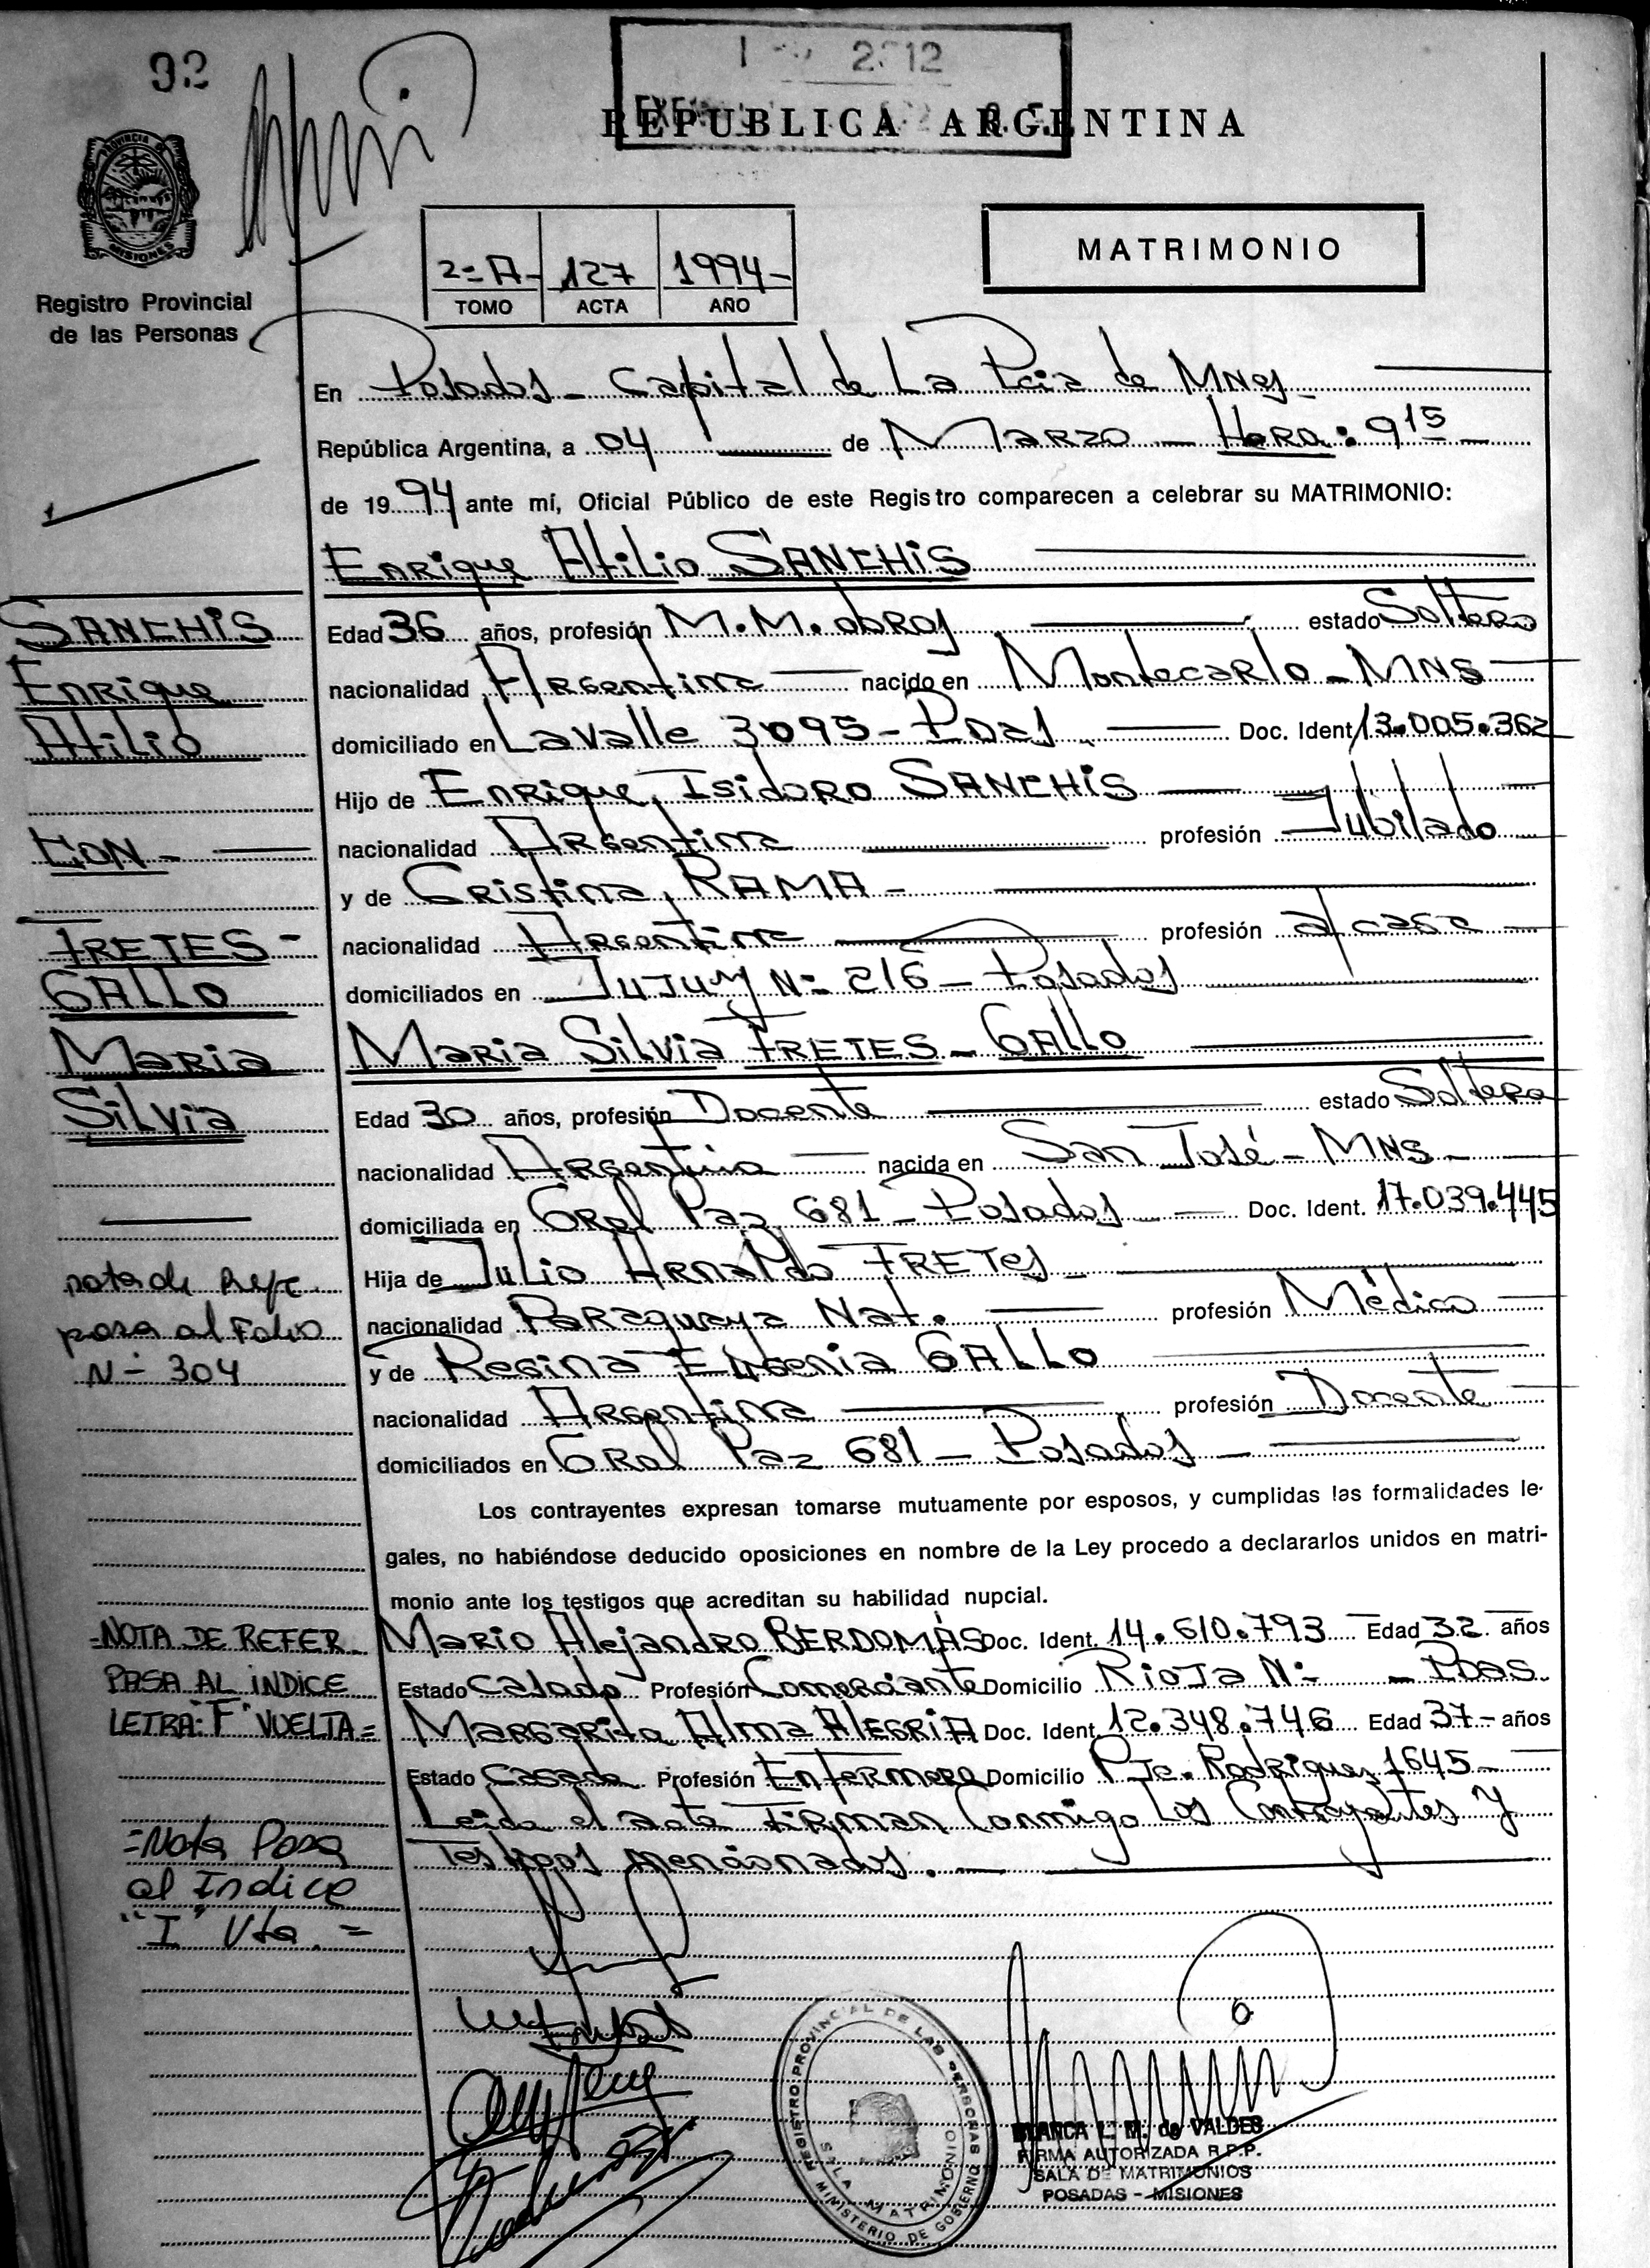 92
2012
REPUBLICA ARGENTINA
PROVINCIA DE
MISIONES
Registro Provincial
de las Personas
2=A- 127 1994-
TOMO ACTA AÑO
MATRIMONIO
En Posadas - Capital de La Pcia de MNes
República Argentina, a 04 de Marzo - Hora: 9 15 -
de 1994 ante mí, Oficial Público de este Registro comparecen a celebrar su MATRIMONIO:
Enrique Atilio SANCHIS
SANCHIS
Enrique
Atilio
CON -
FRETES -
GALLO
Maria
Silvia
Edad 36 años, profesión M.M. obras estado Soltero
nacionalidad Argentina nacido en Montecarlo - MNS
domiciliado en Lavalle 3095 - Pdas Doc. Ident 13.005.362
Hijo de Enrique Isidoro SANCHIS
nacionalidad Argentina profesión Jubilado
y de Cristina RAMA -
nacionalidad Argentina profesión a/casa
domiciliados en JuJuy Nº 216 - Posadas
Maria Silvia FRETES - GALLO
Edad 30 años, profesión Docente estado Soltera
nacionalidad Argentina nacida en San José - MNS -
domiciliada en Gral Paz 681 - Posados Doc. Ident. 17.039.445
Hija de Julio Arnaldo FRETES -
nacionalidad Paraguaya Nat. profesión Médico
y de Regina Eugenia GALLO
nacionalidad Argentina profesión Docente
domiciliados en Gral Paz 681 - Posadas
nota de Refe
pasa al Folio
Nº 304
Los contrayentes expresan tomarse mutuamente por esposos, y cumplidas las formalidades le-
gales, no habiéndose deducido oposiciones en nombre de la Ley procedo a declararlos unidos en matri-
monio ante los testigos que acreditan su habilidad nupcial.
Mario Alejandro BERDOMAS Doc. Ident. 14.610.793 Edad 32 años
Estado Casado Profesión Comerciante Domicilio Rioja Nº - Pdas.
Margarita Alma ALEGRIA Doc. Ident. 12.348.746 Edad 37- años
Estado Casada Profesión Enfermera Domicilio Pje. Rodriguez 1645 -
Leida el acta Firman Conmigo Los Contrayentes y
Testigos mencionados.
=NOTA DE REFER.
PASA AL INDICE
LETRA: "F" VUELTA=
=Nota Pasa
al Indice
"I" Vta. =
REGISTRO PROVINCIAL DE LAS PERSONAS
MINISTERIO DE GOBIERNO
SALA MATRIMONIO
BLANCA L. M. de VALDES
FIRMA AUTORIZADA R.P.P.
SALA DE MATRIMONIOS
POSADAS - MISIONES